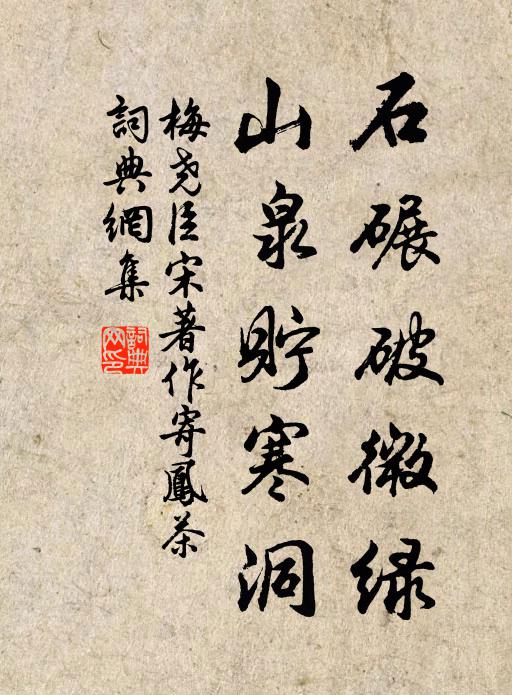 石碾破微绿
山泉贮寒洞
梅尧臣宋著作寄鳳茶
詞典網集
詞典网印